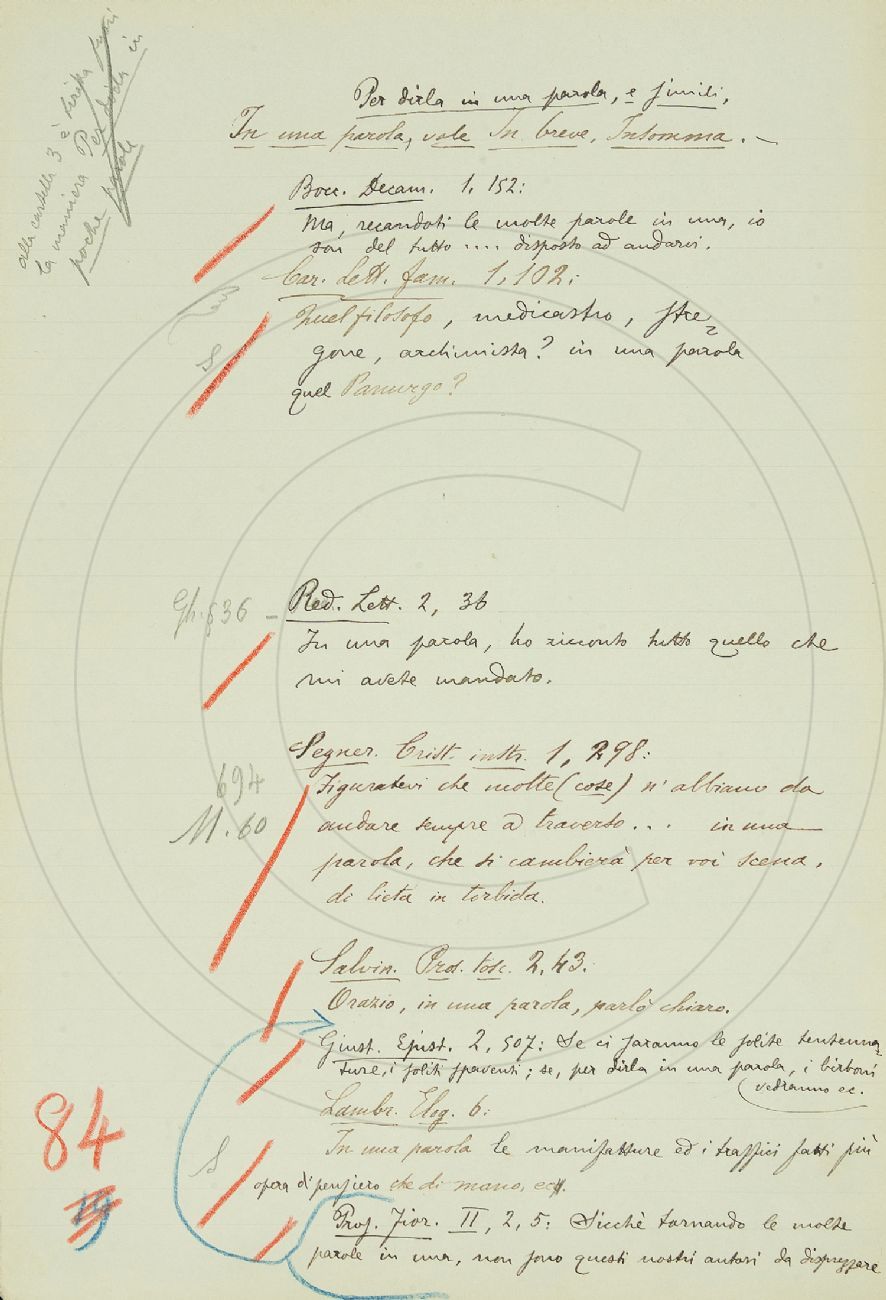 alla cartella 3 è
la maniera Per dirla in
poche parole
Per dirla in una parola, e simili,
In una parola, vale In breve, Insomma. –
Bocc. Decam. 1, 152:
Ma, recandoti le molte parole in una, io
son del tutto .... disposto ad andarvi.
Car. Lett. fam. 1, 102:
Quel filosofo, medicastro, stre-
gone, archimista? in una parola
quel Panurgo?
S
Gh. § 36 – Red. Lett. 2, 36
In una parola, ho ricevuto tutto quello che
mi avete mandato.
Segner. Crist. instr. 1, 298:
694
Figuratevi che molte (cose) n' abbiano da
M. 60
andare sempre a traverso... in una
parola, che si cambierà per voi scena,
di lieta in torbida.
Salvin. Pros. tosc. 2, 43:
Orazio, in una parola, parlò chiaro.
Giust. Epist. 2, 507: Se ci saranno le solite tentenna-
ture, i soliti spaventi; se, per dirla in una parola, i birboni
vedranno ec.
Lambr. Elog. 6:
84
In una parola le manifatture ed i traffici fatti più
S
opera di pensiero che di mano, ec.
Pros. Fior. II, 2, 5: Sicchè tornando le molte
parole in una, non sono questi nostri autori da disprezzare